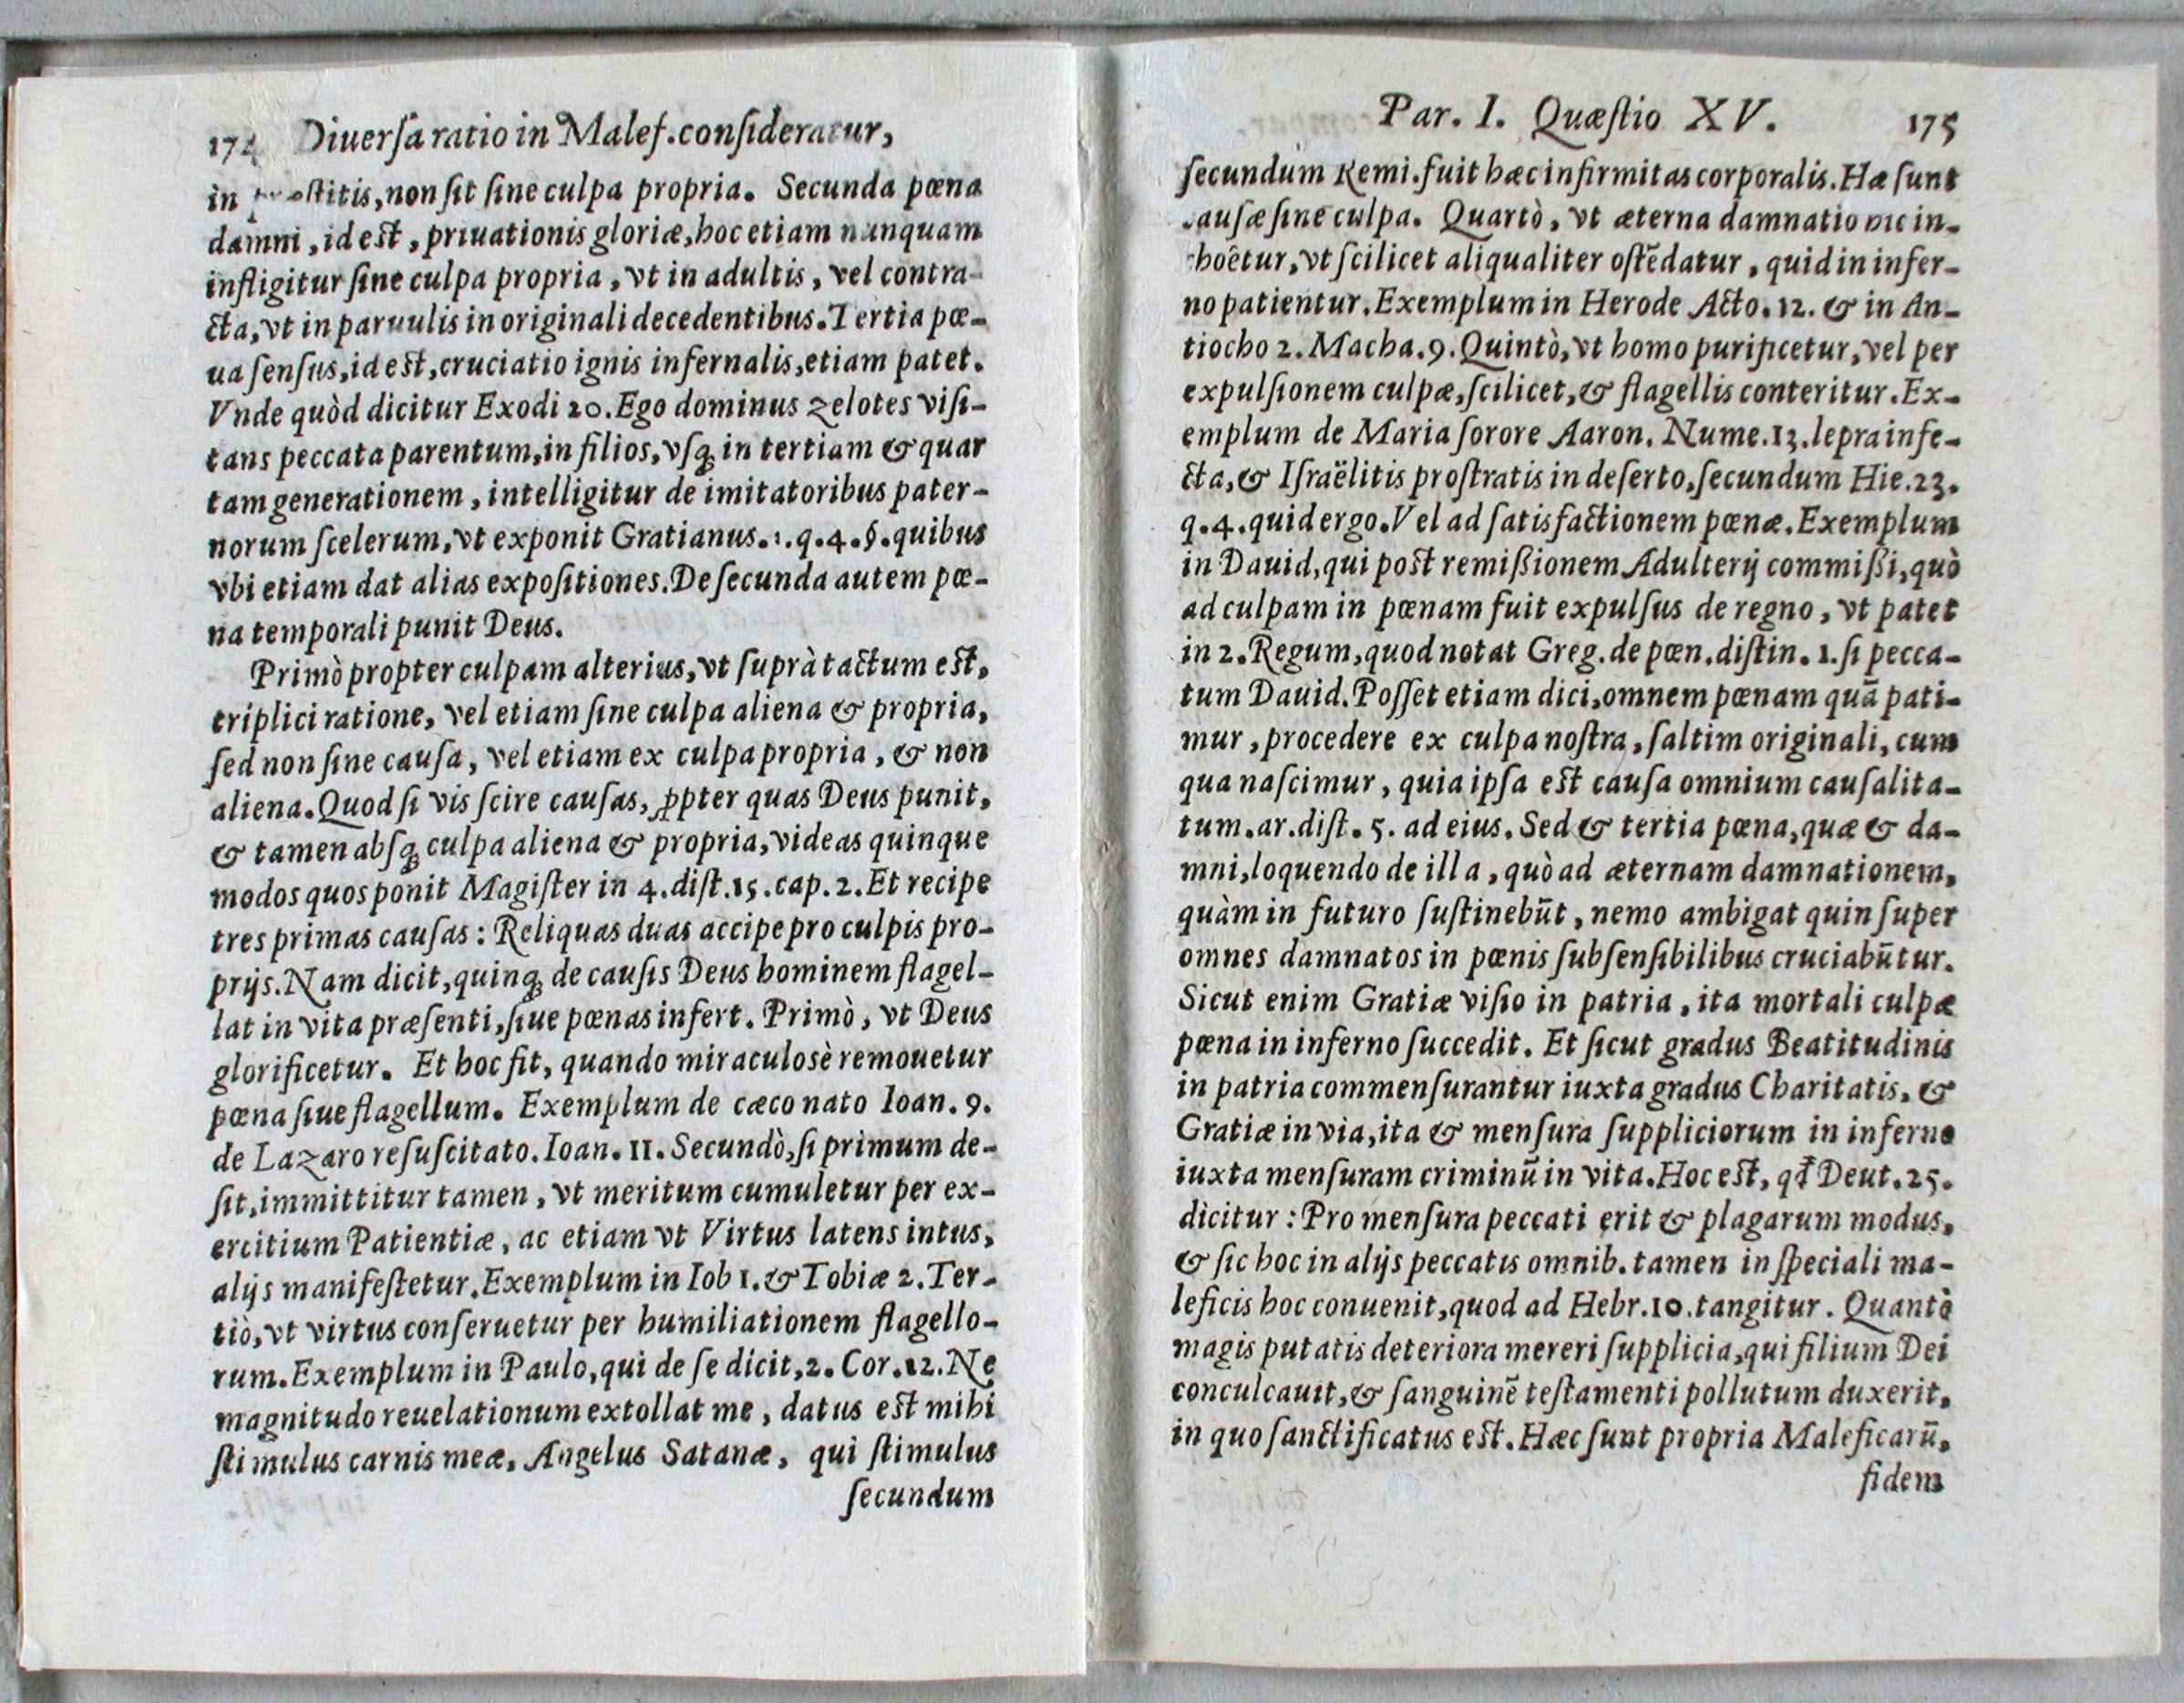 174 Diuerſa ratio in Malef. conſideratur,
in ſtitis, non ſit ſine culpa propria. Secunda pœna
damni, id eſt, priuationis gloriæ, hoc etiam nunquam
infligitur ſine culpa propria, vt in adultis, vel contra-
cta, vt in paruulis in originali decedentibus. Tertia pœ-
ua ſenſus, id eſt, cruciatio ignis infernalis, etiam patet.
Vnde quòd dicitur Exodi 20. Ego dominus zelotes viſi-
tans peccata parentum, in filios, vſq; in tertiam & quar
tam generationem, intelligitur de imitatoribus pater-
norum ſcelerum, vt exponit Gratianus. 1. q. 4. §. quibus
vbi etiam dat alias expoſitiones. De ſecunda autem pœ-
na temporali punit Deus.
Primò propter culpam alterius, vt ſuprà tactum eſt,
triplici ratione, vel etiam ſine culpa aliena & propria,
ſed non ſine cauſa, vel etiam ex culpa propria, & non
aliena. Quod ſi vis ſcire cauſas, ꝓpter quas Deus punit,
& tamen abſq; culpa aliena & propria, videas quinque
modos quos ponit Magiſter in 4. diſt. 15. cap. 2. Et recipe
tres primas cauſas: Reliquas duas accipe pro culpis pro-
prijs. Nam dicit, quinq; de cauſis Deus hominem flagel-
lat in vita præſenti, ſiue pœnas infert. Primò, vt Deus
glorificetur. Et hoc fit, quando miraculosè remouetur
pœna ſiue flagellum. Exemplum de cæco nato Ioan. 9.
de Lazaro reſuſcitato. Ioan. 11. Secundò, ſi primum de-
ſit, immittitur tamen, vt meritum cumuletur per ex-
ercitium Patientiæ, ac etiam vt Virtus latens intus,
alijs manifeſtetur. Exemplum in Iob 1. & Tobiæ 2. Ter-
tiò, vt virtus conſeruetur per humiliationem flagello-
rum. Exemplum in Paulo, qui de ſe dicit, 2. Cor. 12. Ne
magnitudo reuelationum extollat me, datus eſt mihi
ſtimulus carnis meæ, Angelus Satanæ, qui ſtimulus
ſecundum
Par. I. Quæſtio XV. 175
ſecundum Remi. fuit hæc infirmitas corporalis. Hæ ſunt
cauſæ ſine culpa. Quartò, vt æterna damnatio hic in-
choẽtur, vt ſcilicet aliqualiter oſtẽdatur, quid in infer-
no patientur. Exemplum in Herode Acto. 12. & in An-
tiocho 2. Macha. 9. Quintò, vt homo purificetur, vel per
expulſionem culpæ, ſcilicet, & flagellis conteritur. Ex-
emplum de Maria ſorore Aaron. Nume. 13. lepra infe-
cta, & Iſraëlitis proſtratis in deſerto, ſecundum Hie. 23.
q. 4. quid ergo. Vel ad ſatisfactionem pœnæ. Exemplum
in Dauid, qui poſt remißionem Adulterij commißi, quò
ad culpam in pœnam fuit expulſus de regno, vt patet
in 2. Regum, quod notat Greg. de pœn. diſtin. 1. ſi pecca-
tum Dauid. Poſſet etiam dici, omnem pœnam quã pati-
mur, procedere ex culpa noſtra, ſaltim originali, cum
qua naſcimur, quia ipſa eſt cauſa omnium cauſalita-
tum. ar. diſt. 5. ad eius. Sed & tertia pœna, quæ & da-
mni, loquendo de illa, quò ad æternam damnationem,
quàm in futuro ſuſtinebũt, nemo ambigat quin ſuper
omnes damnatos in pœnis ſubſenſibilibus cruciabũtur.
Sicut enim Gratiæ viſio in patria, ita mortali culpæ
pœna in inferno ſuccedit. Et ſicut gradus Beatitudinis
in patria commenſurantur iuxta gradus Charitatis, &
Gratiæ in via, ita & menſura ſuppliciorum in inferno
iuxta menſuram criminũ in vita. Hoc eſt, qđ Deut. 25.
dicitur: Pro menſura peccati erit & plagarum modus,
& ſic hoc in alijs peccatis omnib. tamen in ſpeciali ma-
leficis hoc conuenit, quod ad Hebr. 10. tangitur. Quantò
magis putatis deteriora mereri ſupplicia, qui filium Dei
conculcauit, & ſanguinẽ teſtamenti pollutum duxerit,
in quo ſanctificatus eſt. Hæc ſunt propria Maleficarũ,
fidem